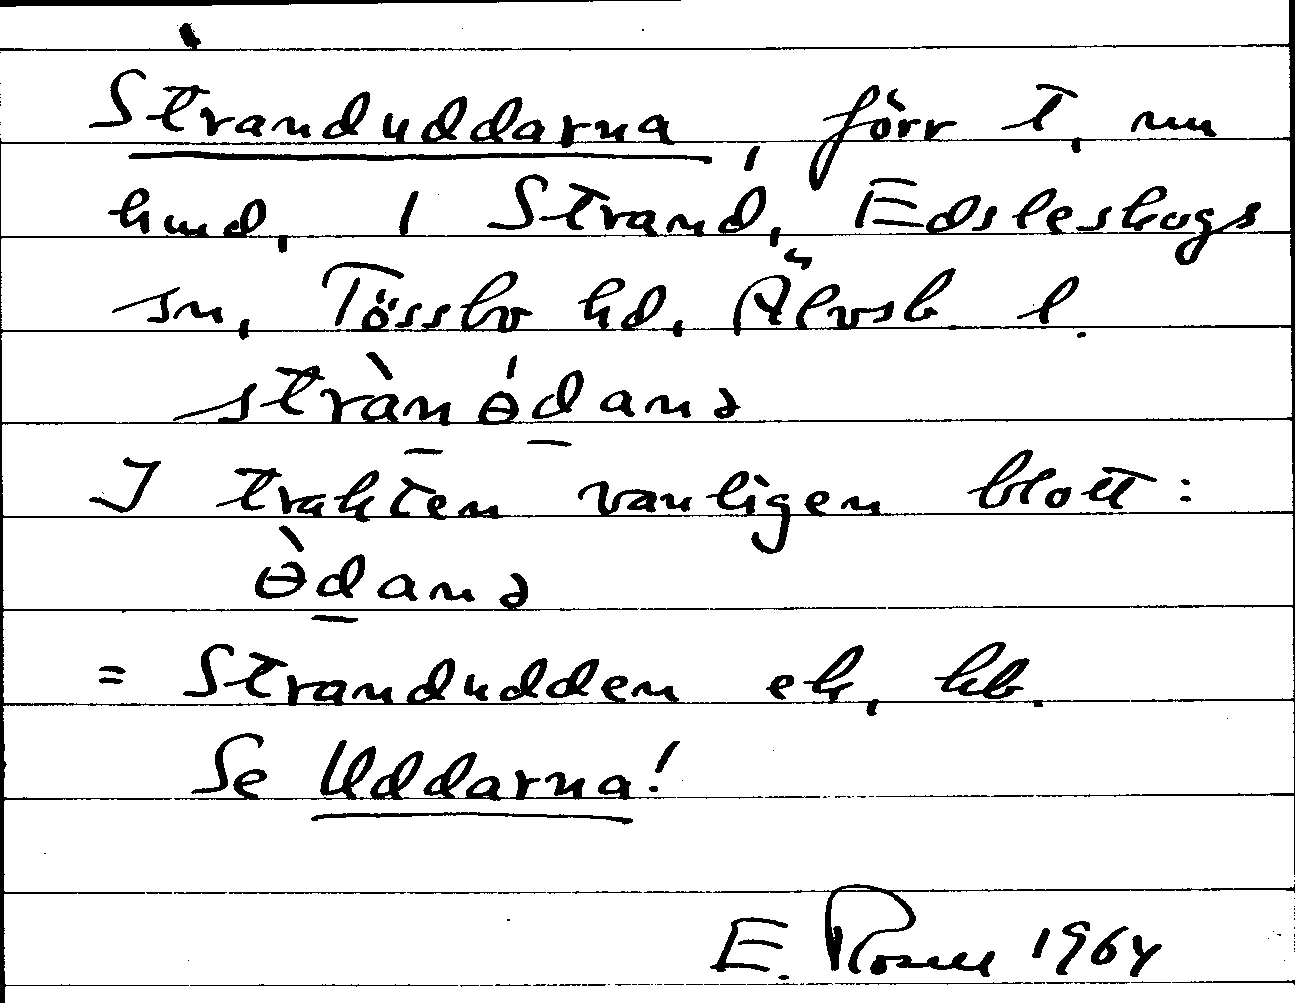 Stranduddarna, förr t, nu
hmd, 1 Strand, Edsleskogs
sn, Tössbo hd, Älvsb. l.
strànɵ́danə
I trakten vanligen blott:
ɵ̀danə
= Strandudden ek, hb.
Se Uddarna!
E. Rosell 1964